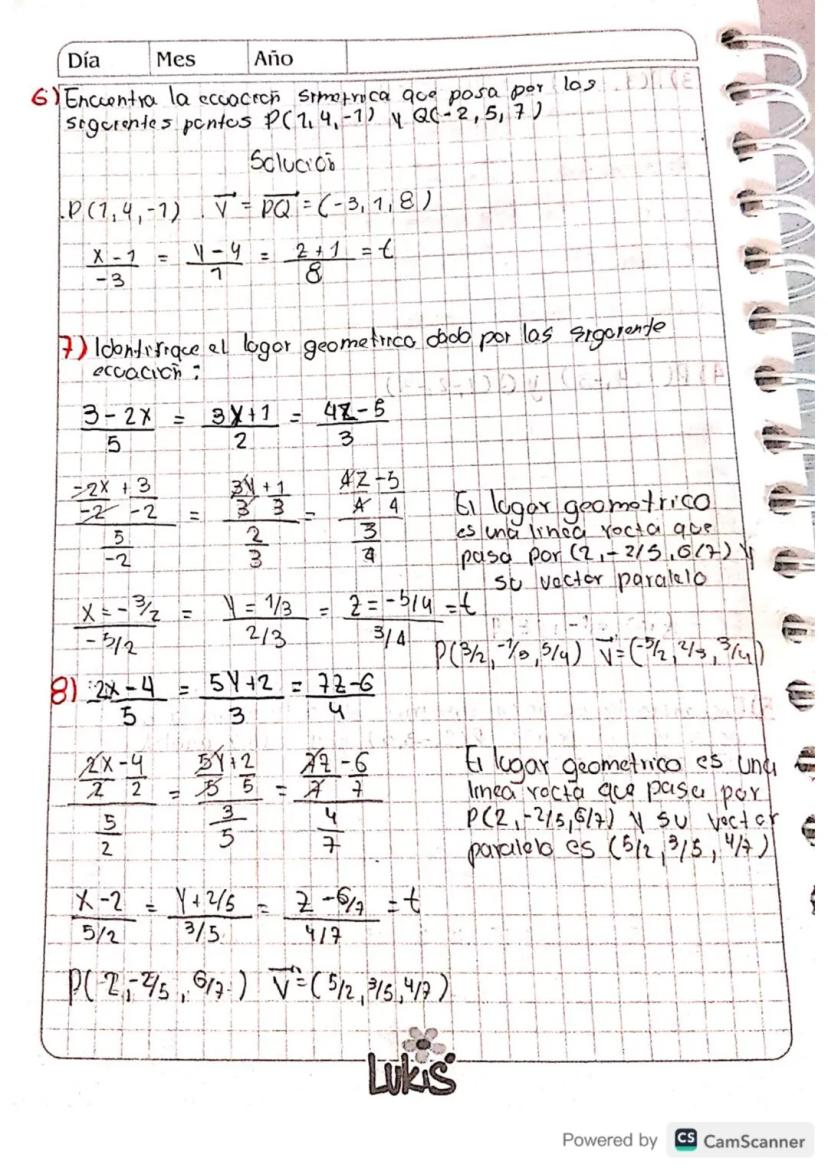 Día Mes Año
6) Encuentra la ecuacion simetrica que pasa por los
siguientes puntos P(1, 4, -1) y Q(-2, 5, 7)
Solución
.P(1, 4, -1) . V = PQ = (-3, 1, 8)
x - 1 / -3 = y - 4 / 1 = z + 1 / 8 = t
7) Identifique el lugar geometrico dado por las siguiente
ecuación:
3 - 2x / 5 = 3y + 1 / 2 = 4z - 5 / 3
-2x/-2 + 3/-2 / 5/-2 = 3y/3 + 1/3 / 2/3 = 4z/4 - 5/4 / 3/4
El lugar geometrico
es una linea recta que
pasa por (2, -2/5, 6/7) y
su vector paralelo
x = -3/2 / -5/2 = y = 1/3 / 2/3 = z = -5/4 / 3/4 = t
P(3/2, -1/3, 5/4) V = (-5/2, 2/3, 3/4)
8) 2x - 4 / 5 = 5y + 2 / 3 = 7z - 6 / 4
2x/2 - 4/2 / 5/2 = 5y/5 + 2/5 / 3/5 = 7z/7 - 6/7 / 4/7
El lugar geometrico es una
linea recta que pasa por
P(2, -2/5, 6/7) y su vector
paralelo es (5/2, 3/5, 4/7)
x - 2 / 5/2 = y + 2/5 / 3/5 = z - 6/7 / 4/7 = t
P(-2, -2/5, 6/7) V = (5/2, 3/5, 4/7)
LUKIS
Powered by CS CamScanner